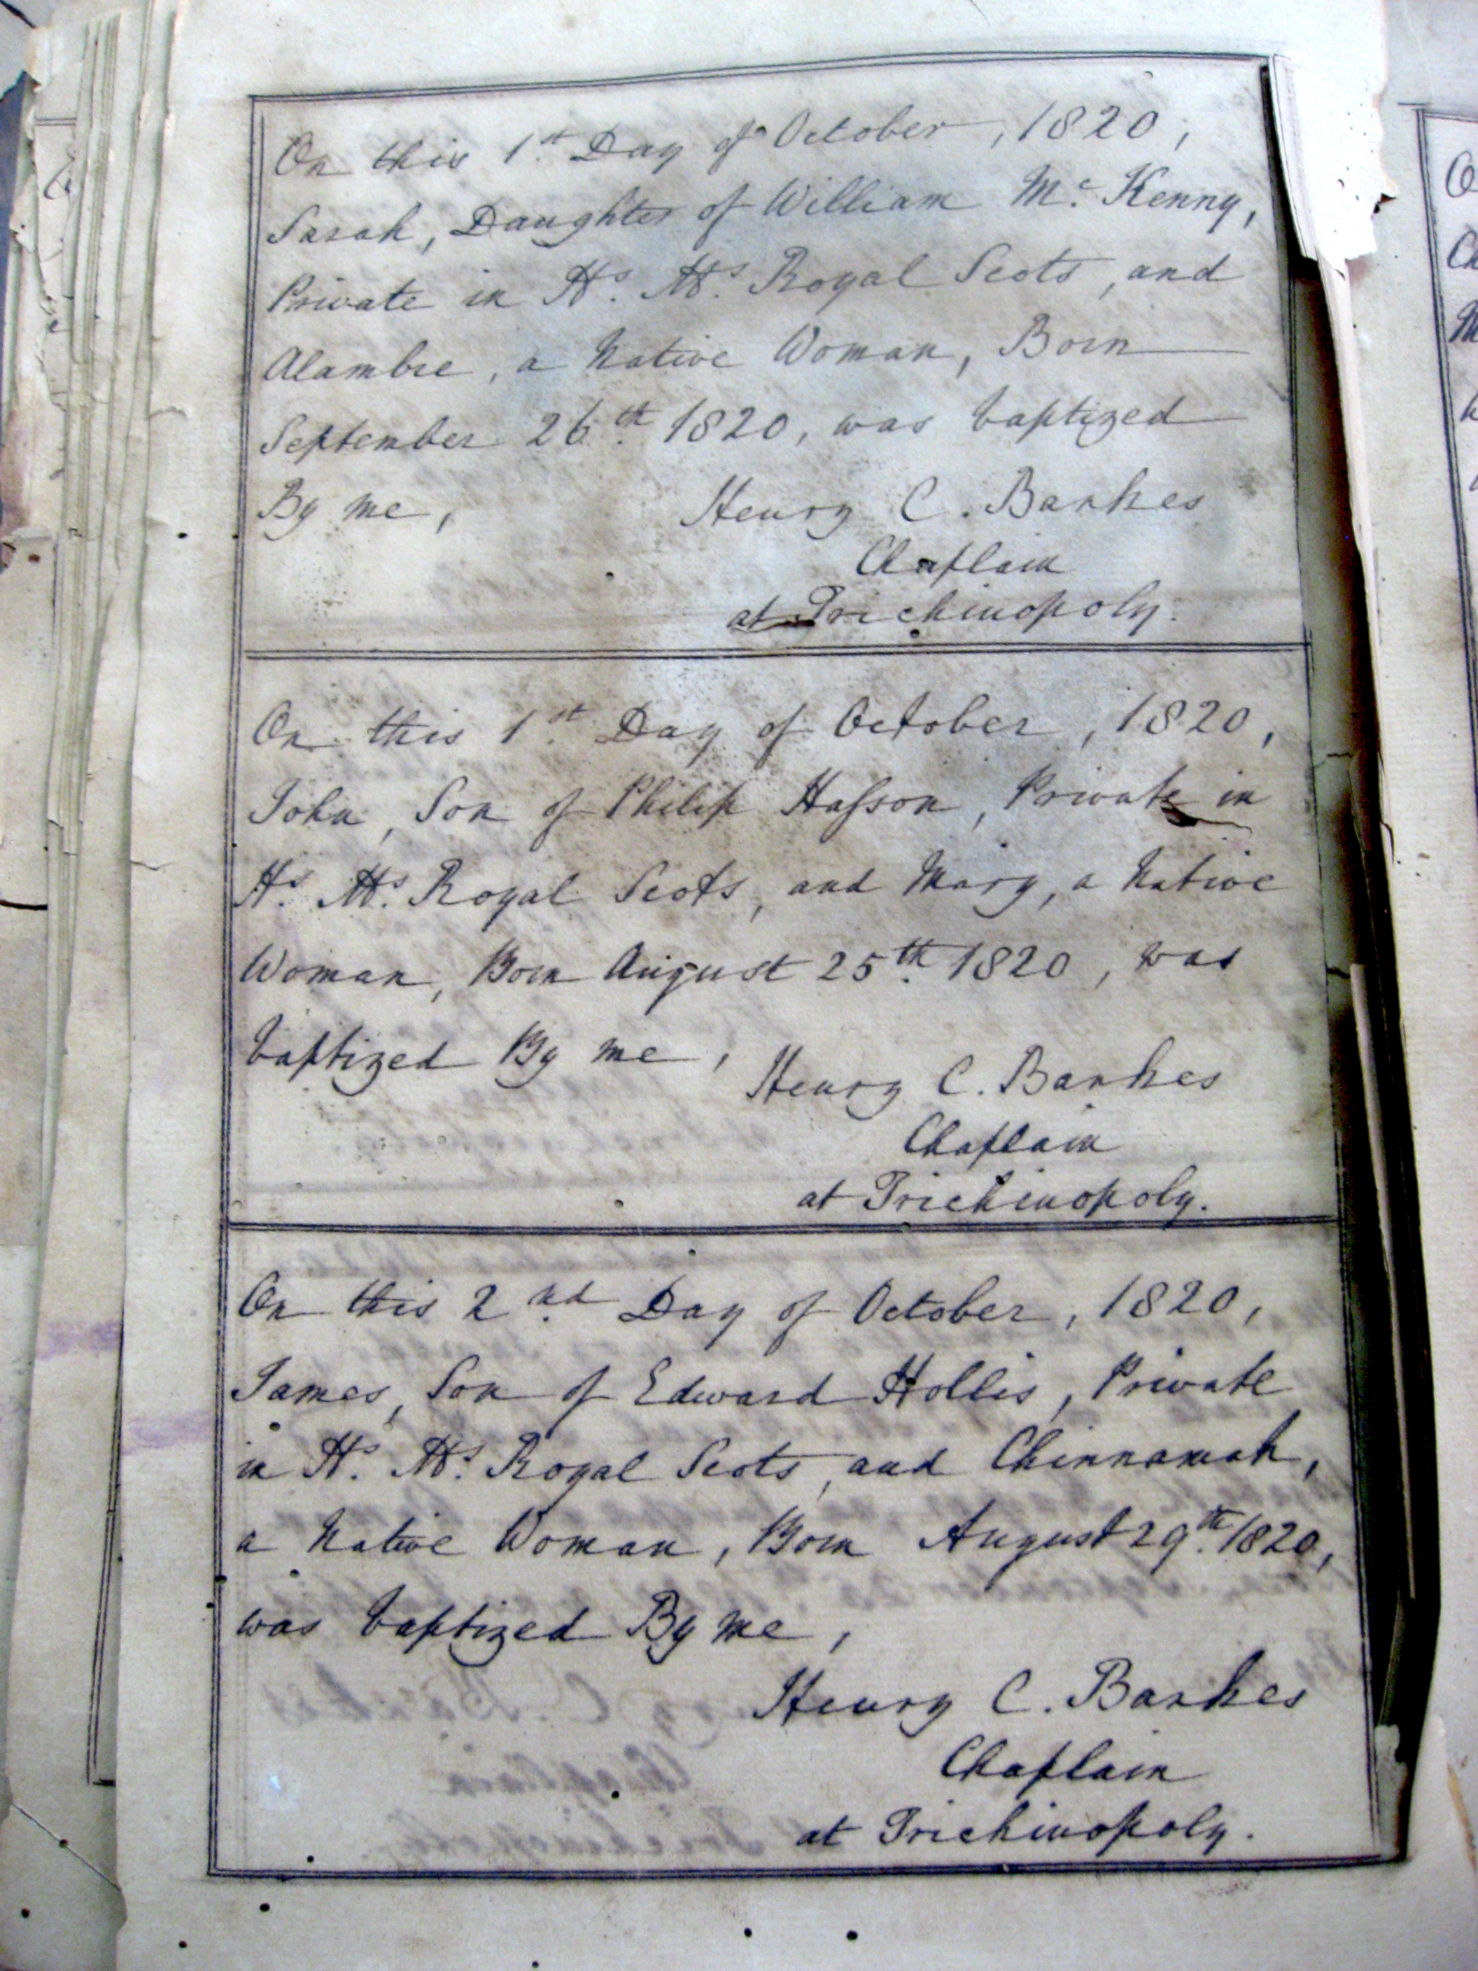 On this 1st Day of October, 1820,
Sarah, Daughter of William Mc. Kenny,
Private in Hs. Ms. Royal Scots, and
Alambie, a Native Woman, Born
September 26th. 1820, was baptized
By me,
Henry C. Bankes
Chaplain
at Trichinopoly.
On this 1st. Day of October, 1820,
John, Son of Philip Hasson, Private in
Hs. Ms. Royal Scots, and Mary, a Native
Woman, Born August 25th. 1820, was
baptized By me,
Henry C. Bankes
Chaplain
at Trichinopoly.
On this 2nd. Day of October, 1820,
James, Son of Edward Hollis, Private
in Hs. Ms. Royal Scots, and Chinnamah,
a Native Woman, Born August 29th. 1820,
was baptized By me,
Henry C. Bankes
Chaplain
at Trichinopoly.